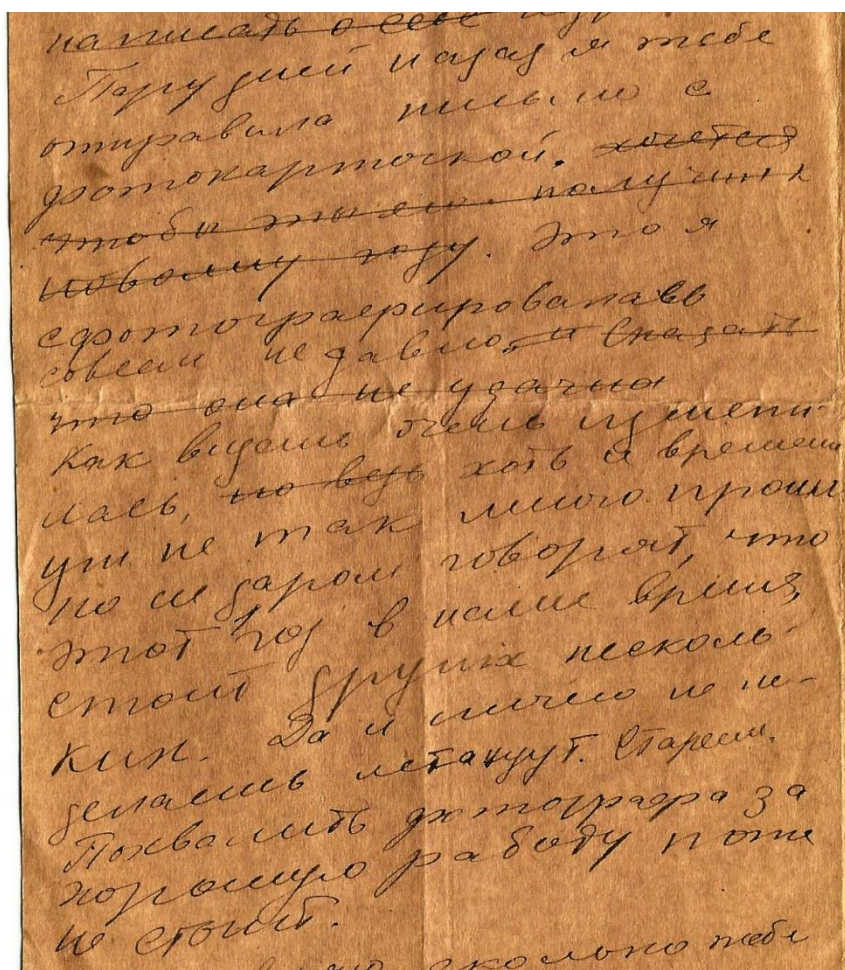 написать о себе
Пару дней назад я тебе
отправила письмо с
фотокарточкой. хочется
чтобы ты его получил к
новому году. Это я
сфотографировалась
совсем недавно, и сказать
что она не удачна
Как видишь очень измени-
лась, но ведь хоть и времени
уж не так много прошл
но не даром говорят, что
этот год в наше время
стоит других несколь-
ких. Да и ничего не по-
делаешь летануут. Стареем.
Похвалить фотографа за
хорошую работу тоже
не стоит.
сколько тебе